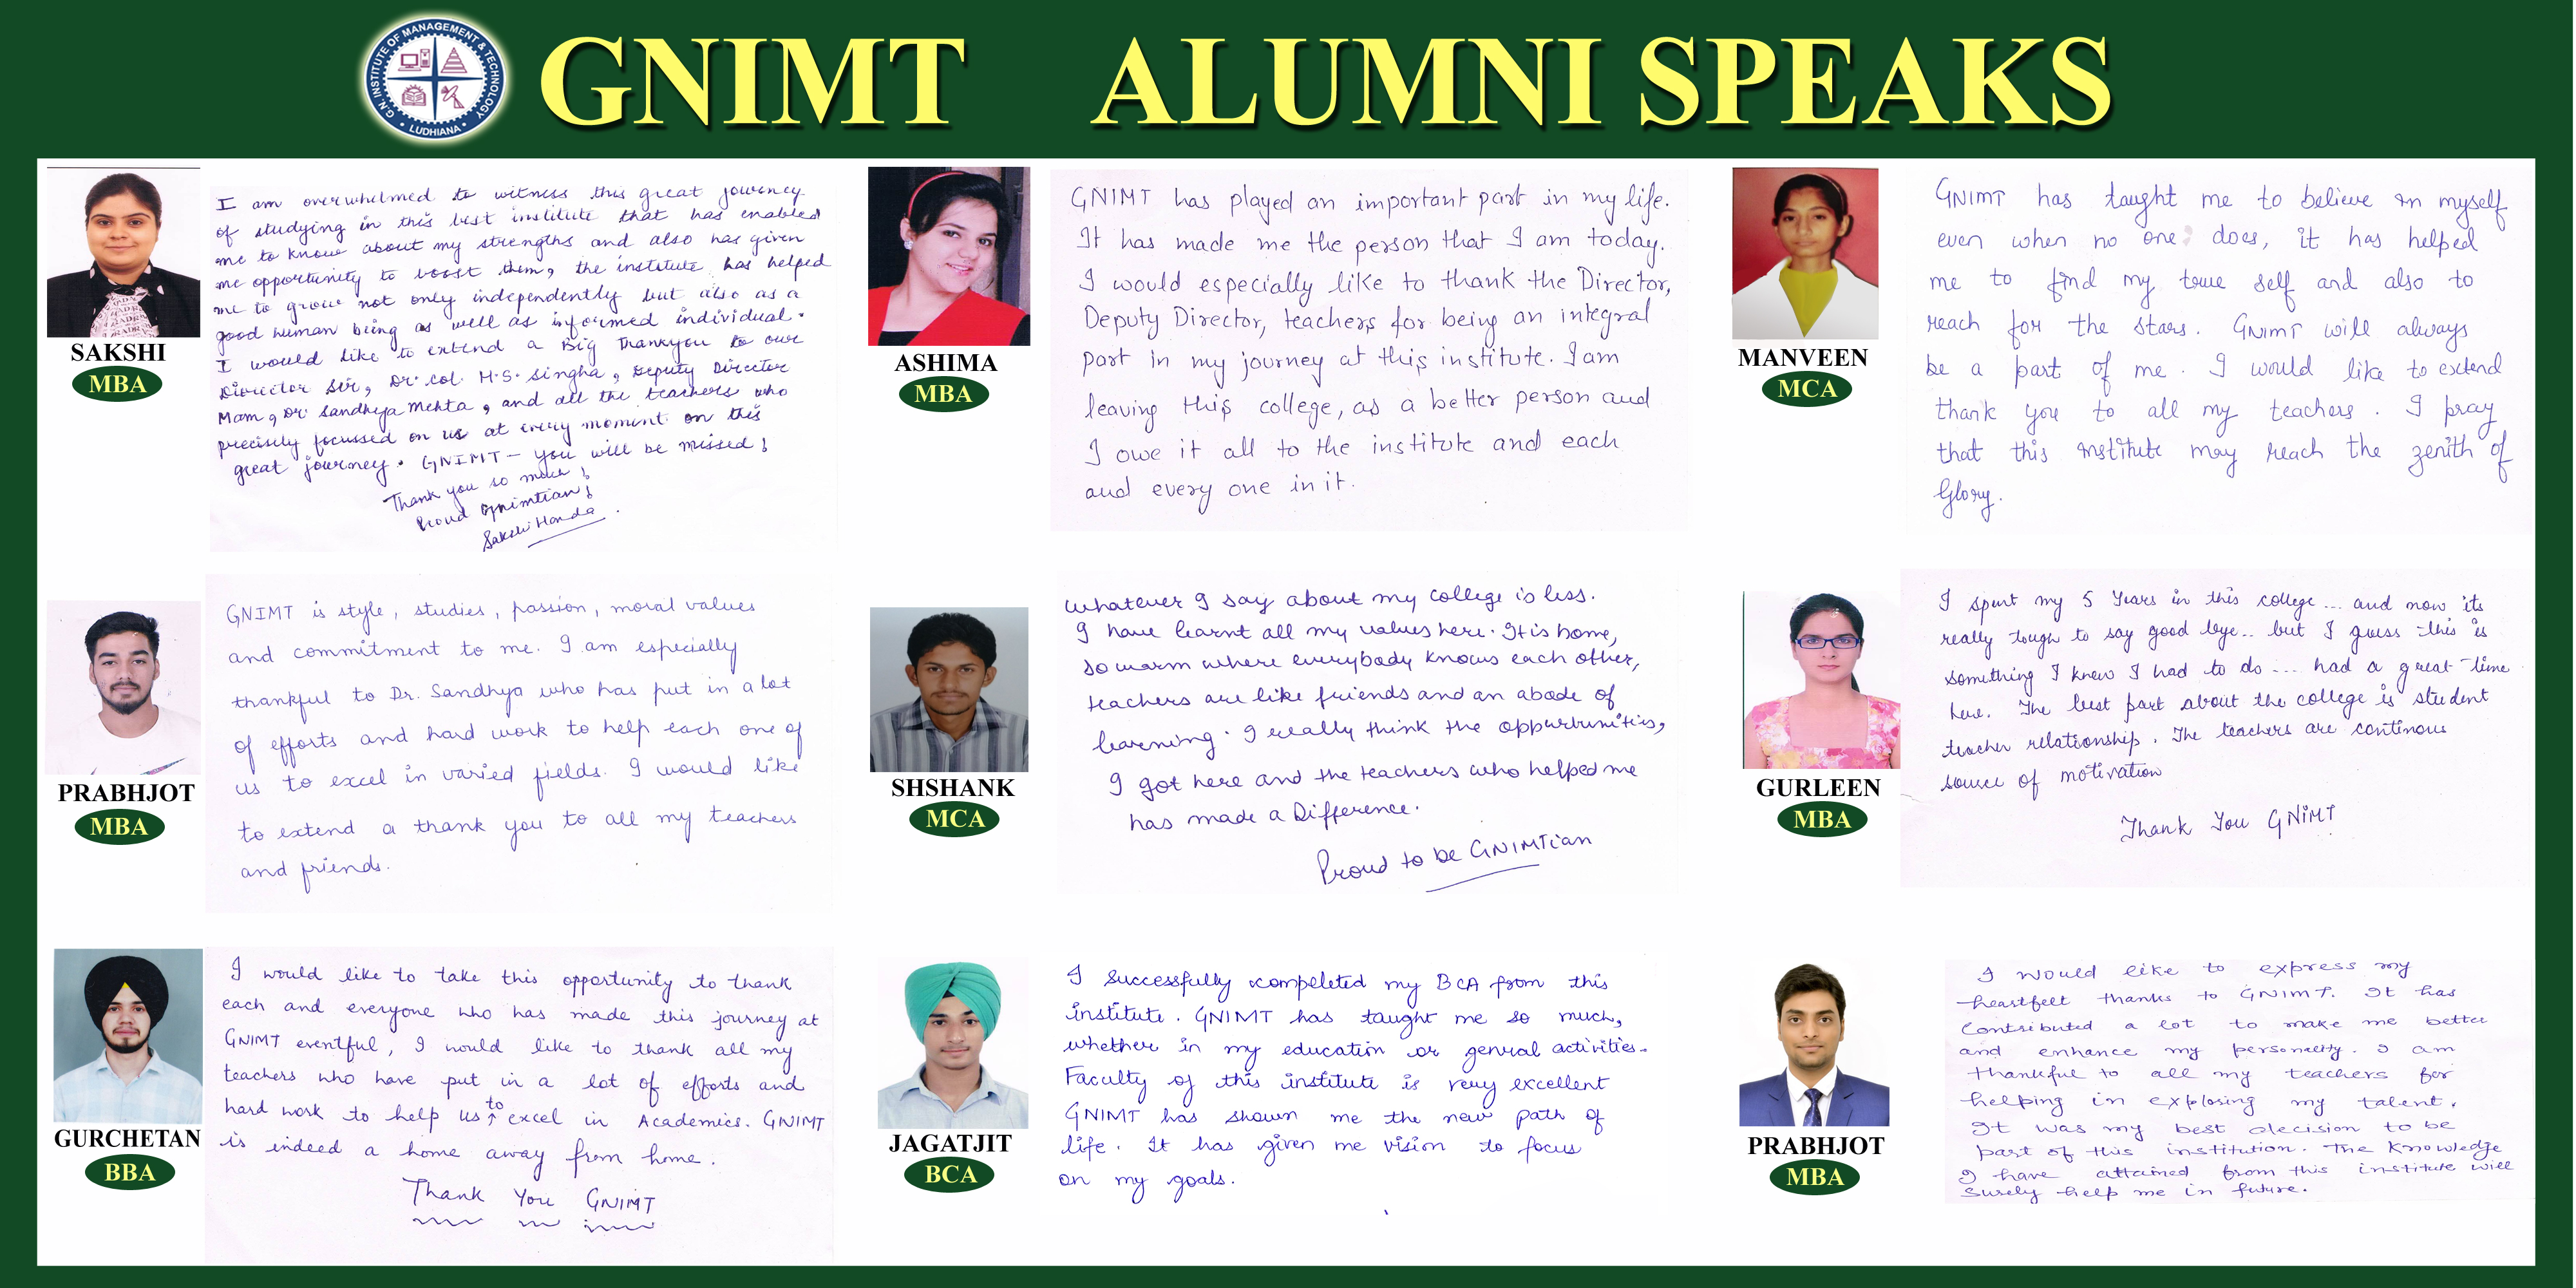 G.N. INSTITUTE OF MANAGEMENT & TECHNOLOGY
• LUDHIANA •
GNIMT ALUMNI SPEAKS
SAKSHI
MBA
I am overwhelmed to witness this great journey
of studying in this best institute that has enabled
me to know about my strengths and also has given
me opportunity to boost them, the institute has helped
me to grow not only independently but also as a
good human being as well as informed individual.
I would like to extend a Big Thankyou to our
Director Sir, Dr. Col. H.S. Singha, Deputy Director
Mam, Dr Sandhya Mehta, and all the teachers who
precisely focussed on us at every moment on this
great journey. GNIMT – you will be missed!
Thank you so much!
Proud Gnimtian!
Sakshi Handa
ASHIMA
MBA
GNIMT has played an important part in my life.
It has made me the person that I am today.
I would especially like to thank the Director,
Deputy Director, teachers for being an integral
part in my journey at this institute. I am
leaving this college, as a better person and
I owe it all to the institute and each
and every one in it.
MANVEEN
MCA
GNIMT has taught me to believe in myself
even when no one does, it has helped
me to find my true self and also to
reach for the stars. GNIMT will always
be a part of me. I would like to extend
thank you to all my teachers. I pray
that this institute may reach the zenith of
Glory.
PRABHJOT
MBA
GNIMT is style, studies, passion, moral values
and commitment to me. I am especially
thankful to Dr. Sandhya who has put in a lot
of efforts and hard work to help each one of
us to excel in varied fields. I would like
to extend a thank you to all my teachers
and friends.
SHSHANK
MCA
Whatever I say about my college is less.
I have learnt all my values here. It is home,
so warm where everybody knows each other,
teachers are like friends and an abode of
learning. I really think the oppurtunities,
I got here and the teachers who helped me
has made a Difference.
Proud to be GNIMTian
GURLEEN
MBA
I spent my 5 Years in this college ... and now its
really tough to say good bye.. but I guess this is
something I knew I had to do .... had a great time
here. The best part about the college is student
teacher relationship. The teachers are continous
source of motivation
Thank You GNIMT
GURCHETAN
BBA
I would like to take this opportunity to thank
each and everyone who has made this journey at
GNIMT eventful, I would like to thank all my
teachers who have put in a lot of efforts and
hard work to help us to excel in Academics. GNIMT
is indeed a home away from home.
Thank You GNIMT
JAGATJIT
BCA
I successfully compeleted my BCA from this
institute. GNIMT has taught me so much,
whether in my education or genral activities.
Faculty of this institute is very excellent
GNIMT has shown me the new path of
life. It has given me vision to focus
on my goals.
PRABHJOT
MBA
I would like to express my
heartfelt thanks to GNIMT. It has
Contributed a lot to make me better
and enhance my personality. I am
thankful to all my teachers for
helping in exploring my talent.
It was my best decision to be
part of this institution. The Knowledge
I have attained from this institute will
surely help me in future.